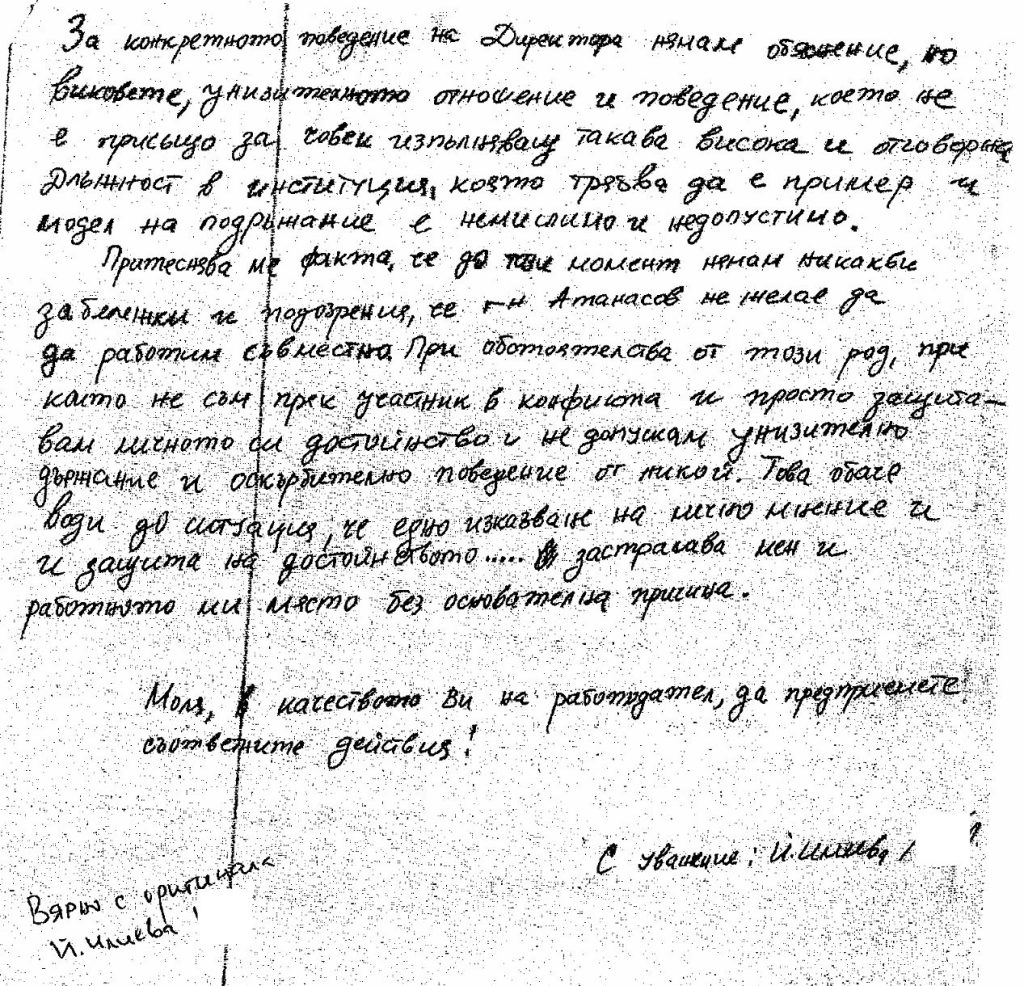 За конкретното поведение на Директора нямам обяснение, но
виковете, унизителното отношение и поведение, което не
е присъщо за човек изпълняващ такава висока и отговорна
длъжност в институция, която трябва да е пример и
модел на подръжание е немислимо и недопустимо.
Притеснява ме факта, че до този момент нямам никакви
забележки и подозрения, че г-н Атанасов не желае да
да работим съвместно. При обстоятелства от този род, при
които не съм пряк участник в конфликта и просто защита-
вам личното си достойнство и не допускам унизително
държание и оскърбително поведение от никой. Това обаче
води до ситуация, че едно изказване на лично мнение и
и защита на достойнството..... застрашава мен и
работното ми място без основателна причина.
Моля, в качеството Ви на работодател, да предприемете
съответните действия!
С уважение: Й. Илиева /
Вярно с оригинала
Й. Илиева